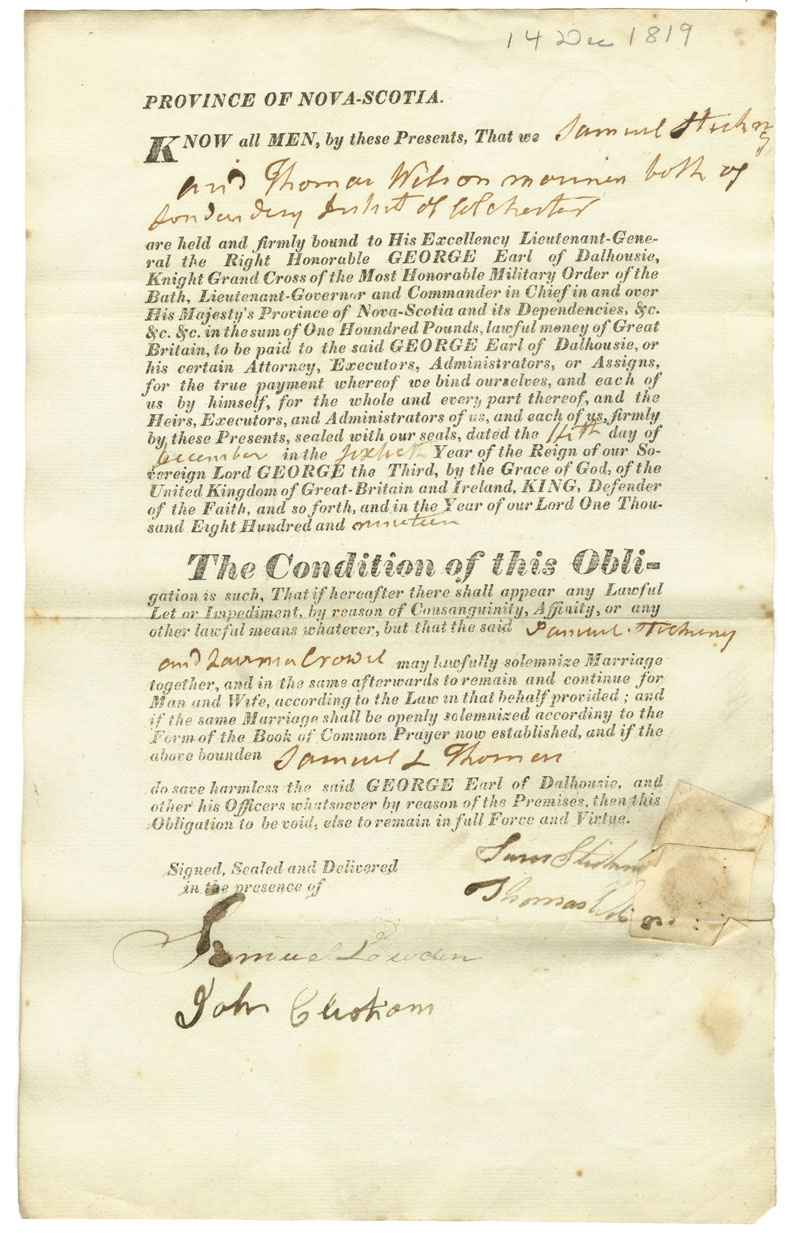 14 Dec 1819
PROVINCE OF NOVA-SCOTIA.
KNOW all MEN, by these Presents, That we Samuel Stickny
and Thomas Wilson mariner both of
Londonderry District of Colchester
are held and firmly bound to His Excellency Lieutenant-Gene-
ral the Right Honorable GEORGE Earl of Dalhousie,
Knight Grand Cross of the Most Honorable Military Order of the
Bath, Lieutenant-Governor and Commander in Chief in and over
His Majesty's Province of Nova-Scotia and its Dependencies, &c.
&c. &c. in the sum of One Houndred Pounds, lawful money of Great
Britain, to be paid to the said GEORGE Earl of Dalhousie, or
his certain Attorney, Executors, Administrators, or Assigns,
for the true payment whereof we bind ourselves, and each of
us by himself, for the whole and every part thereof, and the
Heirs, Executors, and Administrators of us, and each of us, firmly
by these Presents, sealed with our seals, dated the 14th day of
December in the sixtieth Year of the Reign of our So-
vereign Lord GEORGE the Third, by the Grace of God, of the
United Kingdom of Great-Britain and Ireland, KING, Defender
of the Faith, and so forth, and in the Year of our Lord One Thou-
sand Eight Hundred and nineteen
The Condition of this Obli-
gation is such, That if hereafter there shall appear any Lawful
Let or Impediment, by reason of Consanguinity, Affinity, or any
other lawful means whatever, but that the said Samuel Stickney
and Crowel may lawfully solemnize Marriage
together, and in the same afterwards to remain and continue for
Man and Wife, according to the Law in that behalf provided; and
if the same Marriage shall be openly solemnized accordiny to the
Form of the Book of Common Prayer now established, and if the
above bounden Samuel & Thomas
do save harmless the said GEORGE Earl of Dalhousie, and
other his Officers whatsoever by reason of the Premises, then this
Obligation to be void, else to remain in full Force and Virtue.
Signed, Sealed and Delivered
in the presence of
Sam Stickn
Thomas Wilson
Samuel Lowden
John Clisham